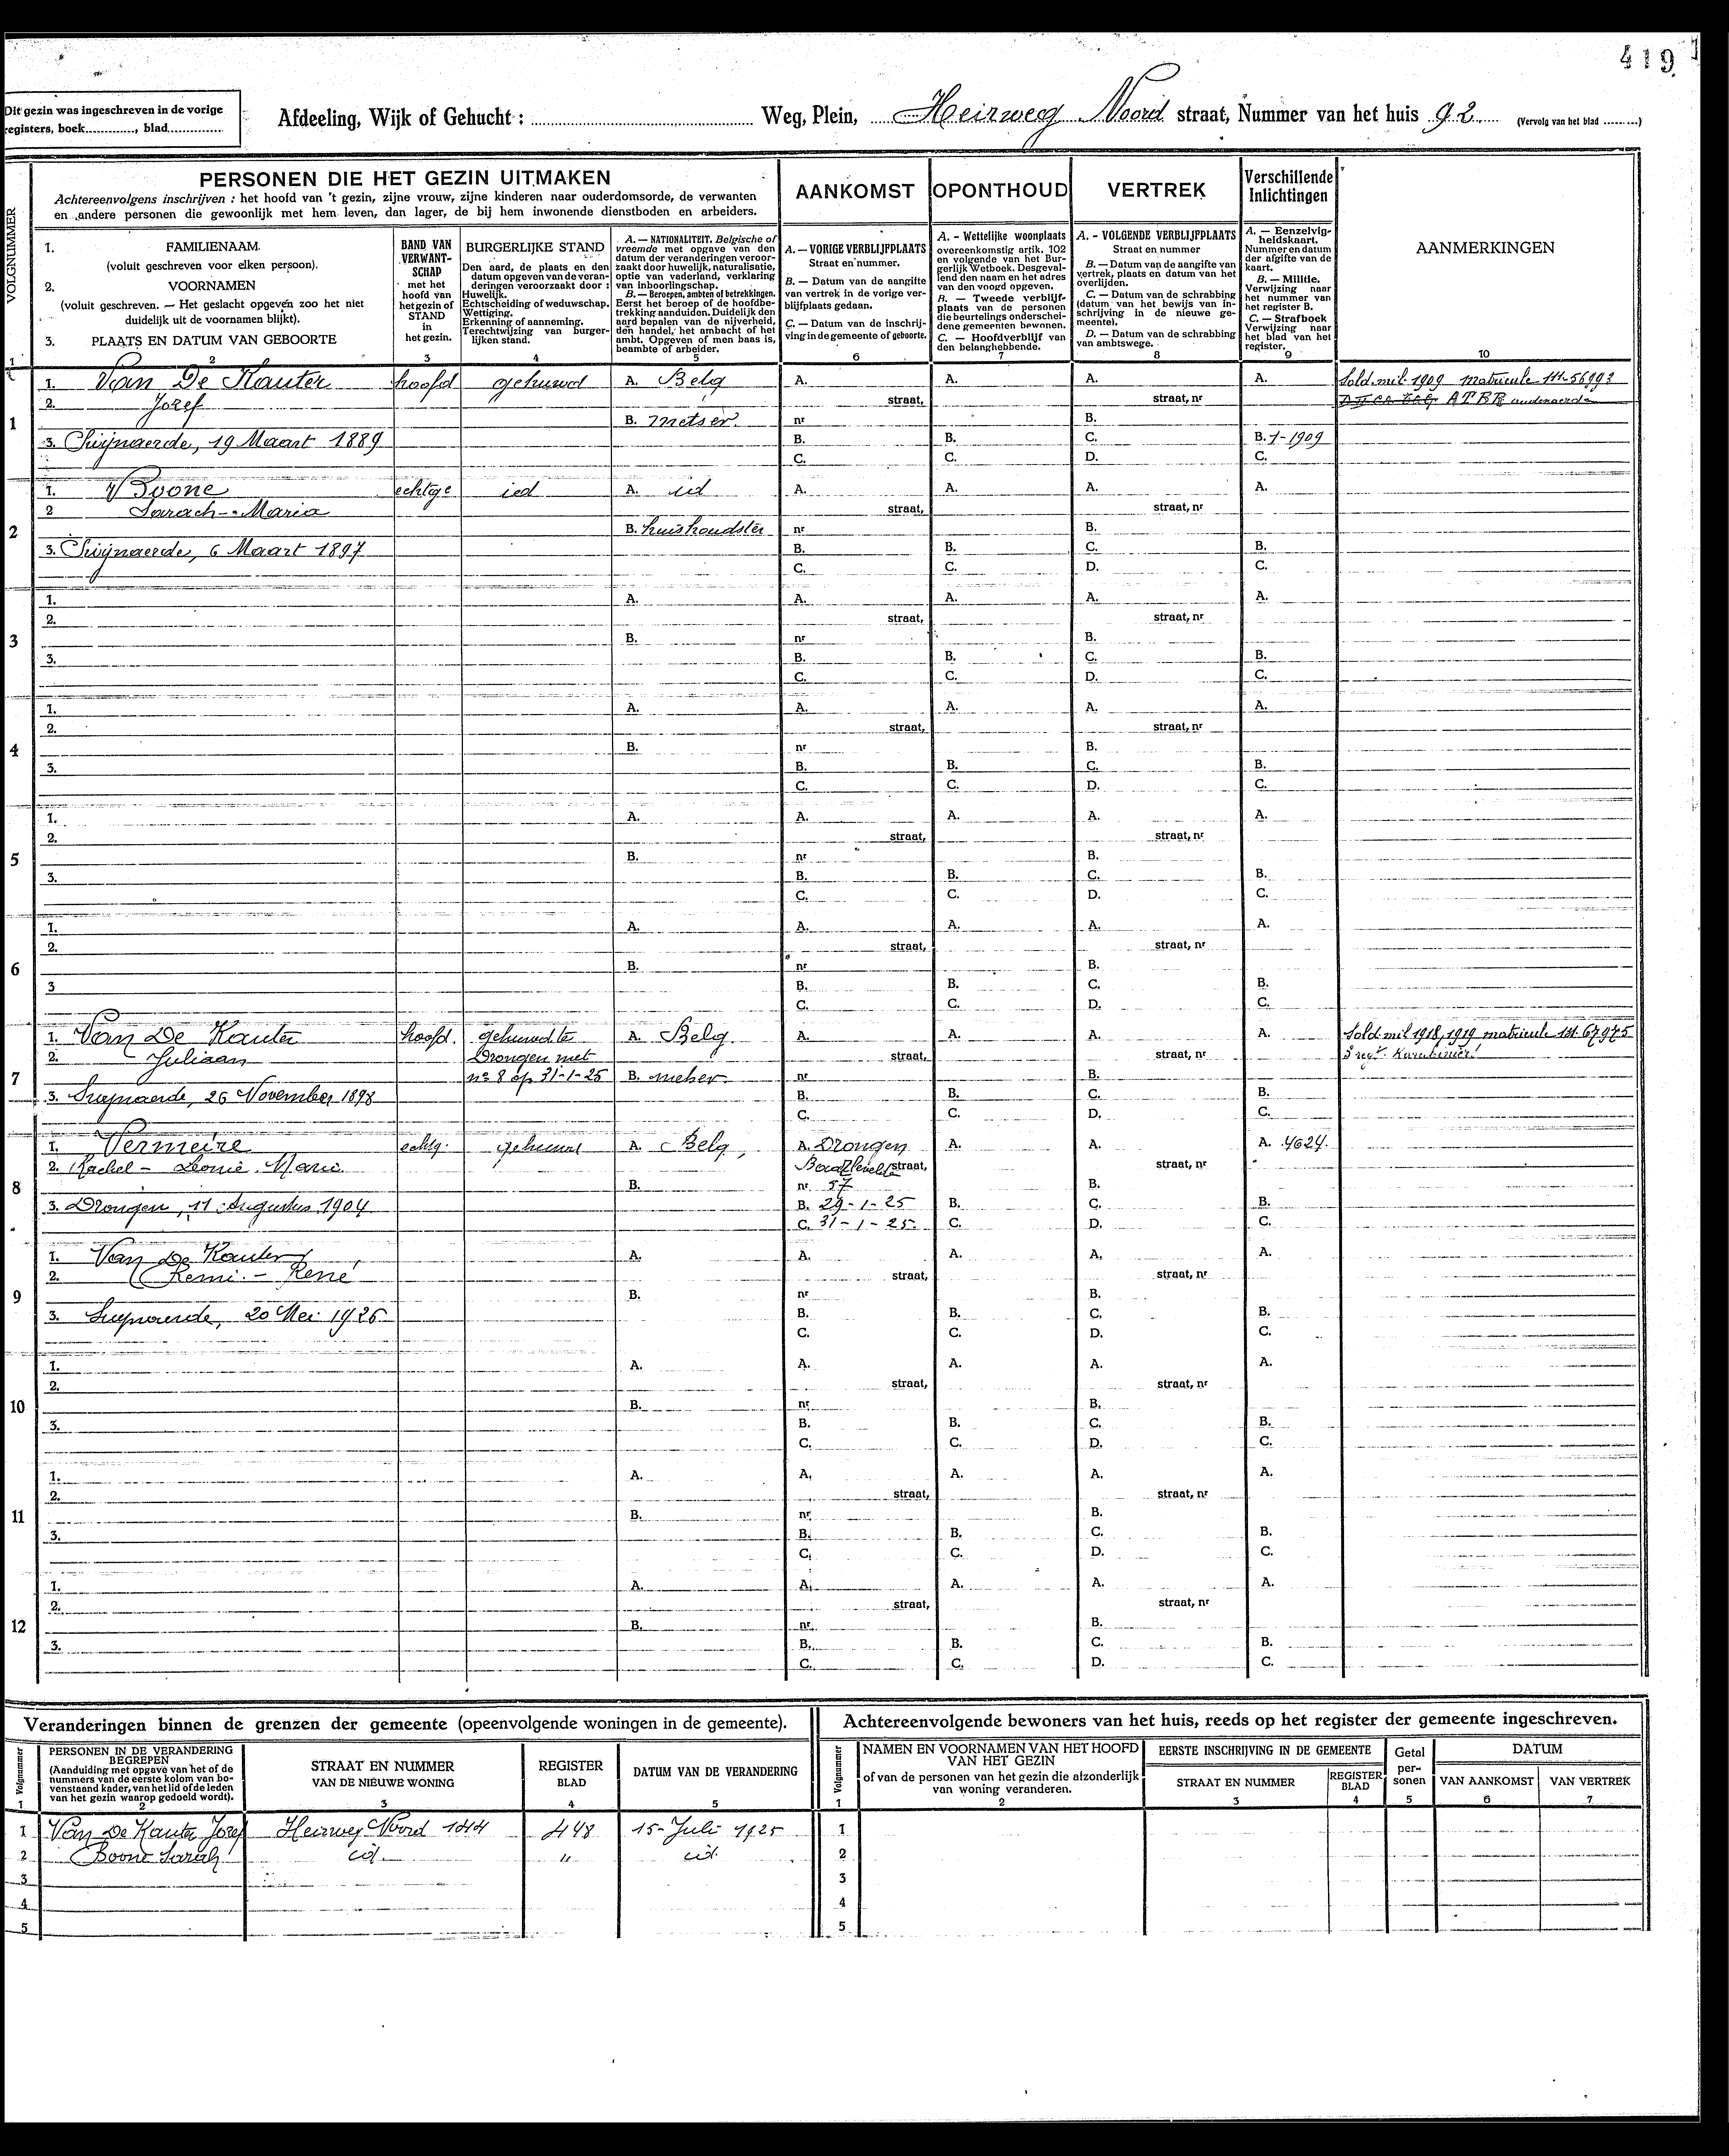 419
Dit gezin was ingeschreven in de vorige
registers, boek............, blad..............
Afdeeling, Wijk of Gehucht : ........ Weg, Plein, Heirweg Noord straat, Nummer van het huis 92 (Vervolg van het blad .........)
VOLGNUMMER
PERSONEN DIE HET GEZIN UITMAKEN
Achtereenvolgens inschrijven : het hoofd van 't gezin, zijne vrouw, zijne kinderen naar ouderdomsorde, de verwanten
en andere personen die gewoonlijk met hem leven, dan lager, de bij hem inwonende dienstboden en arbeiders.
AANKOMST
OPONTHOUD
VERTREK
Verschillende
Inlichtingen
AANMERKINGEN
1. FAMILIENAAM.
(voluit geschreven voor elken persoon).
2. VOORNAMEN
(voluit geschreven. — Het geslacht opgeven zoo het niet
duidelijk uit de voornamen blijkt).
3. PLAATS EN DATUM VAN GEBOORTE
BAND VAN
VERWANT-
SCHAP
met het
hoofd van
het gezin of
STAND
in
het gezin.
BURGERLIJKE STAND
Den aard, de plaats en den
datum opgeven van de veran-
deringen veroorzaakt door :
Huwelijk.
Echtscheiding of weduwschap.
Wettiging.
Erkenning of aanneming.
Terechtwijzing van burger-
lijken stand.
A. — NATIONALITEIT. Belgische of
vreemde met opgave van den
datum der veranderingen veroor-
zaakt door huwelijk, naturalisatie,
optie van vaderland, verklaring
van inboorlingschap.
B. — Beroepen, ambten of betrekkingen.
Eerst het beroep of de hoofdbe-
trekking aanduiden. Duidelijk den
aard bepalen van de nijverheid,
den handel, het ambacht of het
ambt. Opgeven of men baas is,
beambte of arbeider.
A. — VORIGE VERBLIJFPLAATS
Straat en nummer.
B. — Datum van de aangifte
van vertrek in de vorige ver-
blijfplaats gedaan.
C. — Datum van de inschrij-
ving in de gemeente of geboorte.
A. - Wettelijke woonplaats
overeenkomstig artik. 102
en volgende van het Bur-
gerlijk Wetboek. Desgeval-
lend den naam en het adres
van den voogd opgeven.
B. — Tweede verblijf-
plaats van de personen
die beurtelings onderschei-
dene gemeenten bewonen.
C. — Hoofdverblijf van
den belanghebbende.
A. - VOLGENDE VERBLIJFPLAATS
Straat en nummer
B. — Datum van de aangifte van
vertrek, plaats en datum van het
overlijden.
C. — Datum van de schrabbing
(datum van het bewijs van in-
schrijving in de nieuwe ge-
meente).
D. — Datum van de schrabbing
van ambtswege.
A. — Eenzelvig-
heidskaart.
Nummer en datum
der afgifte van de
kaart.
B. — Militie.
Verwijzing naar
het nummer van
het register B.
C. — Strafboek
Verwijzing naar
het blad van het
register.
1 2 3 4 5 6 7 8 9 10
1
1. Van De Kauter hoofd gehuwd A. Belg A. A. A. A. Sold. mil 1909 matricule 56993
2. Jozef straat, straat, nr
B. metser. nr B.
3. Swijnaerde, 19 Maart 1889 B. B. C. B. 7-1909
C. C. D. C.
2
1. Boone echtge ied A. id A. A. A. A.
2 Sarach - Maria straat, straat, nr
B. huishoudster nr B.
3. Swijnaerde, 6 Maart 1897 B. B. C. B.
C. C. D. C.
3
1. A. A. A. A. A.
2. straat, straat, nr
B. nr B.
3. B. B. C. B.
C. C. D. C.
4
1. A. A. A. A. A.
2. straat, straat, nr
B. nr B.
3. B. B. C. B.
C. C. D. C.
5
1. A. A. A. A. A.
2. straat, straat, nr
B. nr B.
3. B. B. C. B.
C. C. D. C.
6
1. A. A. A. A. A.
2. straat, straat, nr
B. nr B.
3 B. B. C. B.
C. C. D. C.
7
1. Van De Kauter hoofd. gehuwd te A. Belg. A. A. A. A. Sold. mil 1918, 1919 matricule 67975
2. Juliaan Drongen met straat, straat, nr 3 regt.
nr 8 op 31-1-25 B. nr B.
3. Swynaerde, 26 November 1898 B. B. C. B.
C. C. D. C.
8
1. Vermeire echtg. gehuwd A. Belg, A. Drongen A. A. A. 4624.
2. Rachel - Leonie Marie straat, straat, nr
B. nr. 57 B.
3. Drongen, 11 Augustus 1904 B. 29-1-25 B. C. B.
C. 31-1-25. C. D. C.
9
1. Van De Kauter A. A. A. A. A.
2. Remi. - René straat, straat, nr
B. nr B.
3. Swynaerde, 20 Mei 1926 B. B. C. B.
C. C. D. C.
10
1. A. A. A. A. A.
2. straat, straat, nr
B. nr. B.
3. B. B. C. B.
C. C. D. C.
11
1. A. A. A. A. A.
2. straat, straat, nr
B. nr B.
3. B. B. C. B.
C. C. D. C.
12
1. A. A. A. A. A.
2. straat, straat, nr
B. nr. B.
3. B. B. C. B.
C. C. D. C.
Veranderingen binnen de grenzen der gemeente (opeenvolgende woningen in de gemeente).
Volgnummer
PERSONEN IN DE VERANDERING
BEGREPEN
(Aanduiding met opgave van het of de
nummers van de eerste kolom van bo-
venstaand kader, van het lid of de leden
van het gezin waarop gedoeld wordt).
STRAAT EN NUMMER
VAN DE NIEUWE WONING
REGISTER
BLAD
DATUM VAN DE VERANDERING
1 2 3 4 5
1 Van De Kauter Jozef Heirweg Noord 144 448 15 - Juli 1925
2 Boone Sarah id. " id.
3
4
5
Achtereenvolgende bewoners van het huis, reeds op het register der gemeente ingeschreven.
Volgnummer
NAMEN EN VOORNAMEN VAN HET HOOFD
VAN HET GEZIN
of van de personen van het gezin die afzonderlijk
van woning veranderen.
EERSTE INSCHRIJVING IN DE GEMEENTE
STRAAT EN NUMMER
REGISTER
BLAD
Getal
per-
sonen
DATUM
VAN AANKOMST
VAN VERTREK
1 2 3 4 5 6 7
1
2
3
4
5